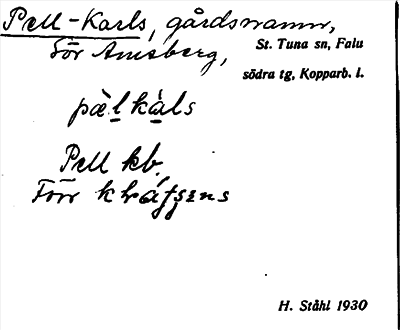 Pell-Karls, gårdsnamn,
Sör Amsberg,
St. Tuna sn, Falu
södra tg, Kopparb. l.
pȧ̀l kàls
Pell kb.
Förr
H. Ståhl 1930